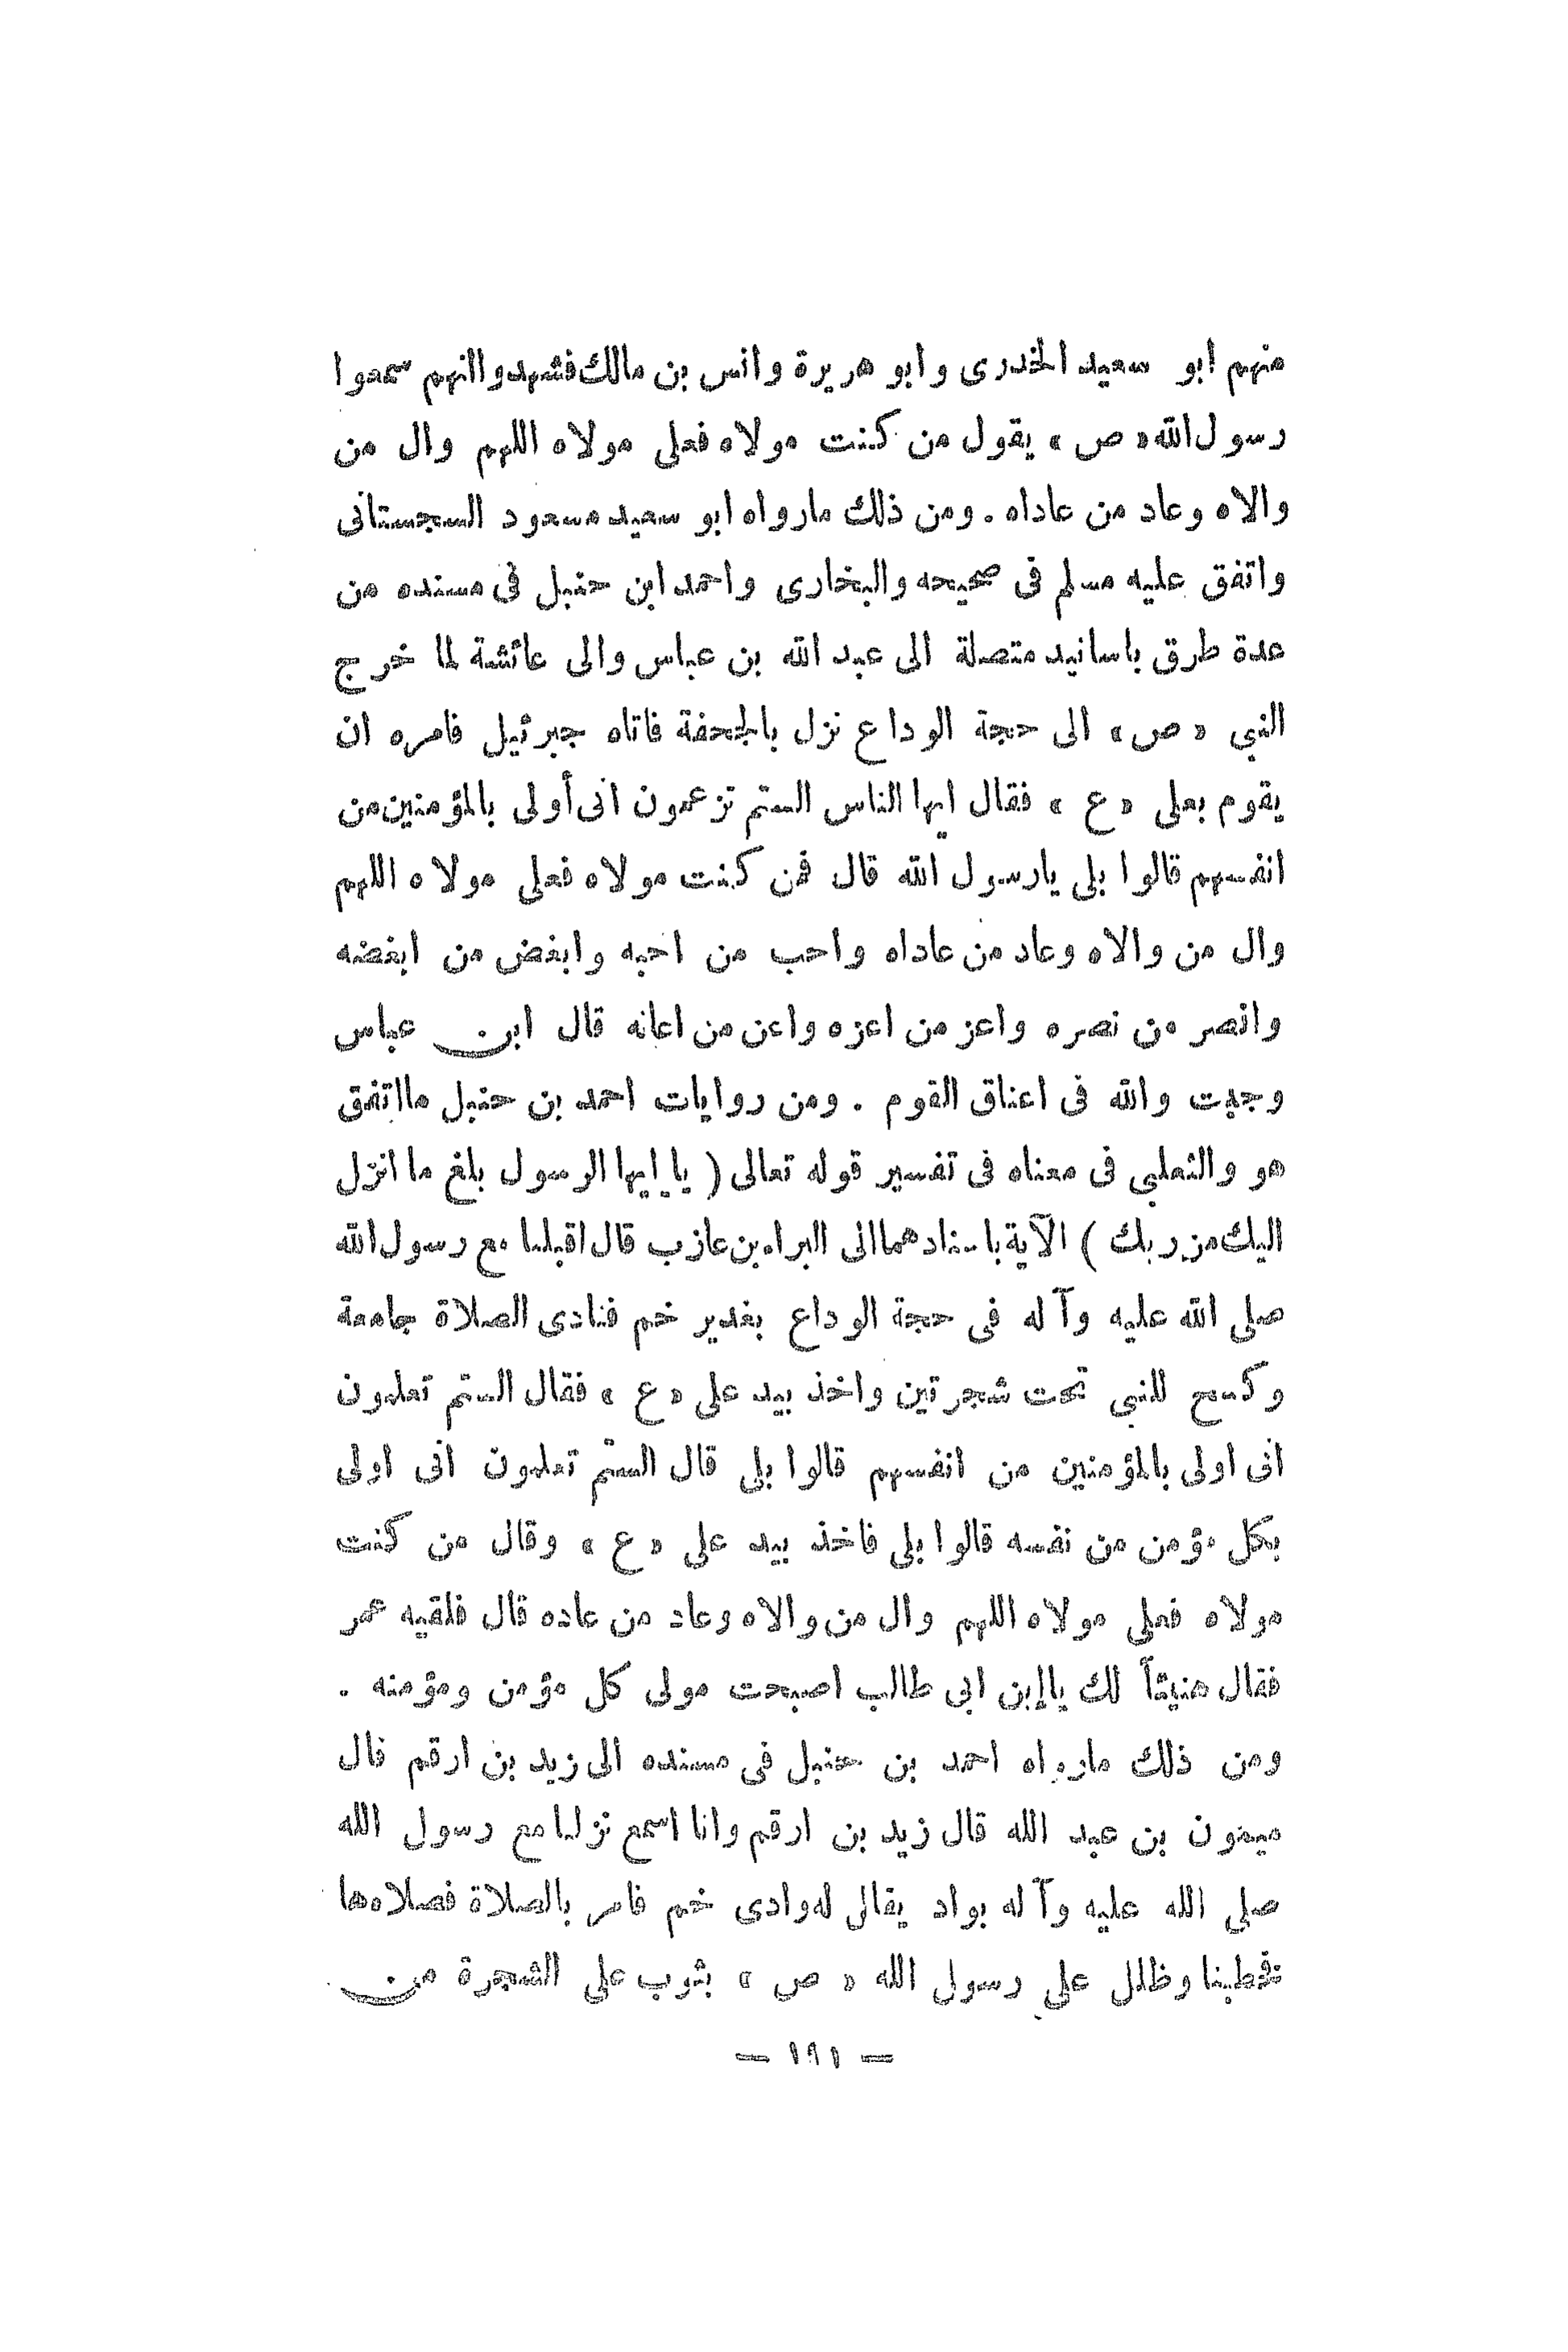 منهم ابو سعيد الخدرى وابو هريرة وانس بن مالك فشهدوا انهم سمعوا
رسول الله « ص » يقول من كنت مولاه فعلى مولاه اللهم وال من
والاه وعاد من عاداه . ومن ذلك مارواه ابو سعيد مسعود السجستانى
واتفق عليه مسلم فى صحيحه والبخارى واحمد ابن حنبل فى مسنده من
عدة طرق باسانيد متصلة الى عبد الله بن عباس والى عائشة لما خرج
النبي « ص » الى حجة الوداع نزل بالجحفة فاتاه جبرئيل فامره ان
يقوم بعلى « ع » فقال ايها الناس الستم تزعمون انى أولى بالمؤمنين من
انفسهم قالوا بلى يارسول الله قال فمن كنت مولاه فعلى مولاه اللهم
وال من والاه وعاد من عاداه واحب من احبه وابغض من ابغضه
وانصر من نصره واعز من اعزه واعن من اعانه قال ابن عباس
وجبت والله فى اعناق القوم . ومن روايات احمد بن حنبل مااتفق
هو والثعلبي فى معناه فى تفسير قوله تعالى ( يا ايها الرسول بلغ ما انزل
اليك من ربك ) الآية باسنادهما الى البراء بن عازب قال اقبلنا مع رسول الله
صلى الله عليه وآله فى حجة الوداع بغدير خم فنادى الصلاة جامعة
وكسح للنبي تحت شجرتين واخذ بيد على « ع » فقال الستم تعلمون
انى اولى بالمؤمنين من انفسهم قالوا بلى قال الستم تعلمون انى اولى
بكل مؤمن من نفسه قالوا بلى فاخذ بيد على « ع » وقال من كنت
مولاه فعلى مولاه اللهم وال من والاه وعاد من عاده قال فلقيه عمر
فقال هنيئاً لك ياإبن ابى طالب اصبحت مولى كل مؤمن ومؤمنه .
ومن ذلك مارواه احمد بن حنبل فى مسنده الى زيد بن ارقم قال
ميمون بن عبد الله قال زيد بن ارقم وانا اسمع نزلنا مع رسول الله
صلى الله عليه وآله بواد يقال له وادى خم فامر بالصلاة فصلاها
فخطبنا وظلل على رسول الله « ص » بثوب على الشجرة من
— ١٩١ —